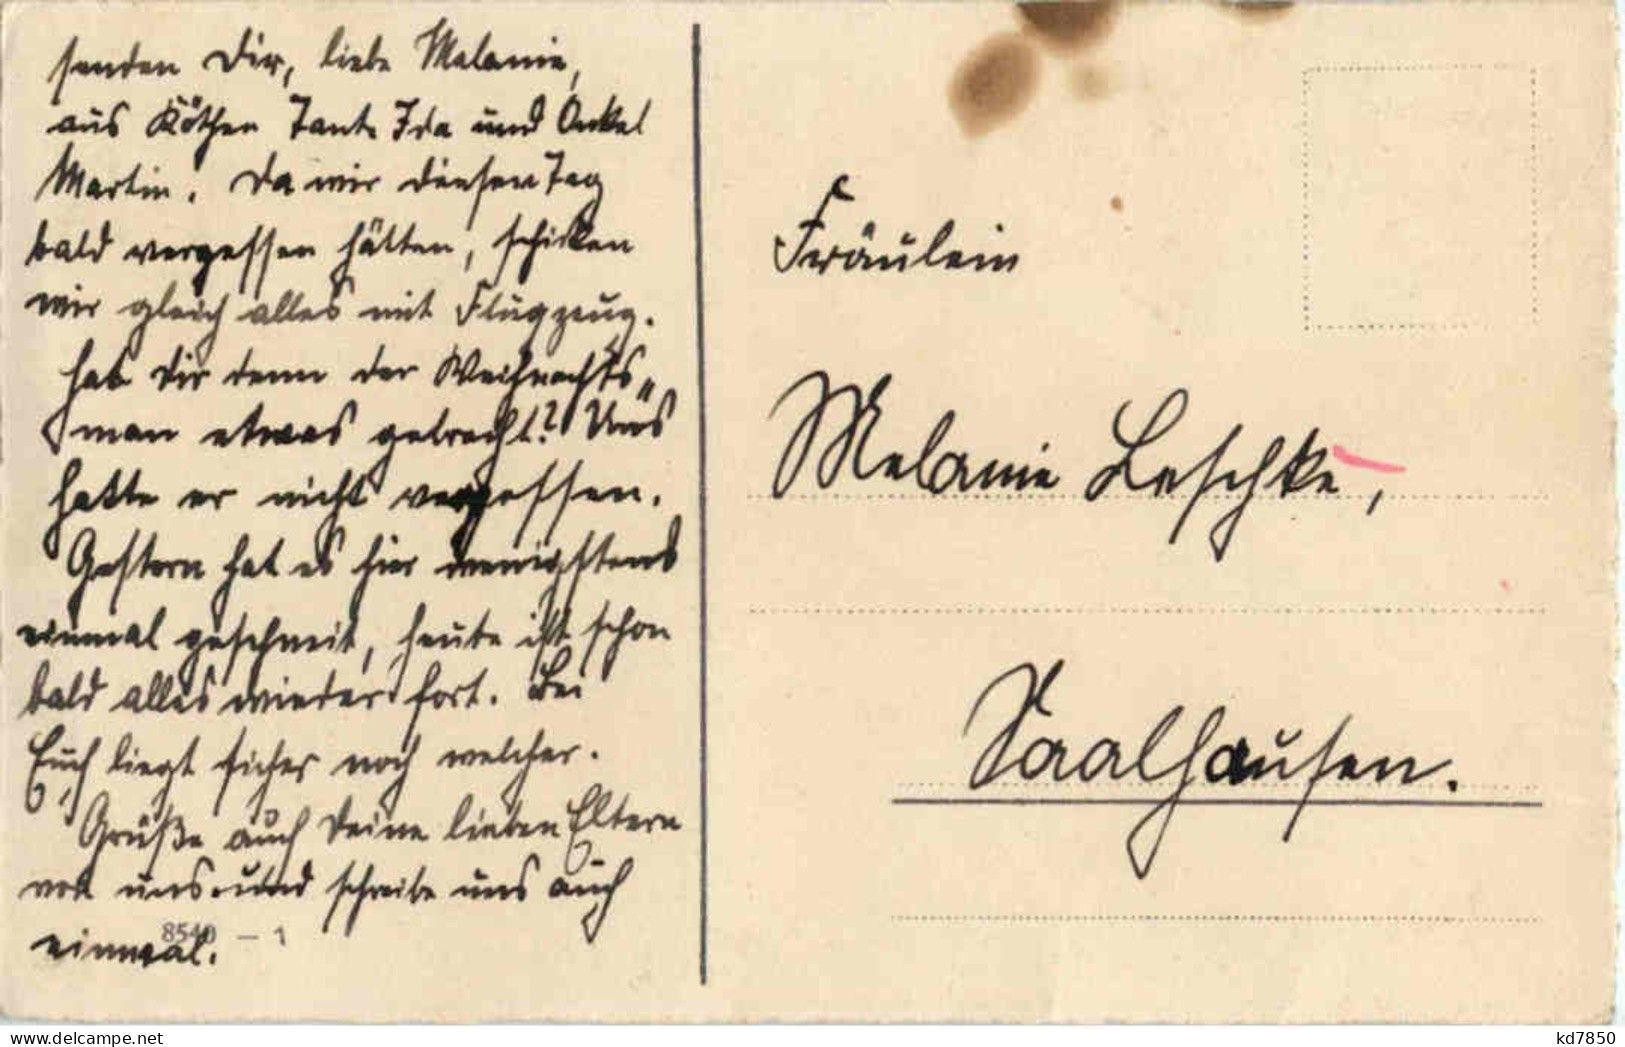 senden Dir, liebe Melanie,
aus Köthen Tante Ida und Onkel
Martin. Da wir diesen Tag
bald vergessen hätten, schicken
wir gleich alles mit Flugzeug.
Hat Dir denn der Weihnachts„
man etwas gebracht? Uns
hatte er nicht vergessen.
Gestern hat es hier wenigstens
einmal geschneit, heute ist schon
bald alles wieder fort. Bei
Euch liegt sicher noch welcher.
Grüße auch Deine lieben Eltern
von uns und schreibe uns auch
einmal.
8540 – 1
Fräulein
Melanie Leschke,
Saalhausen.
kd7850